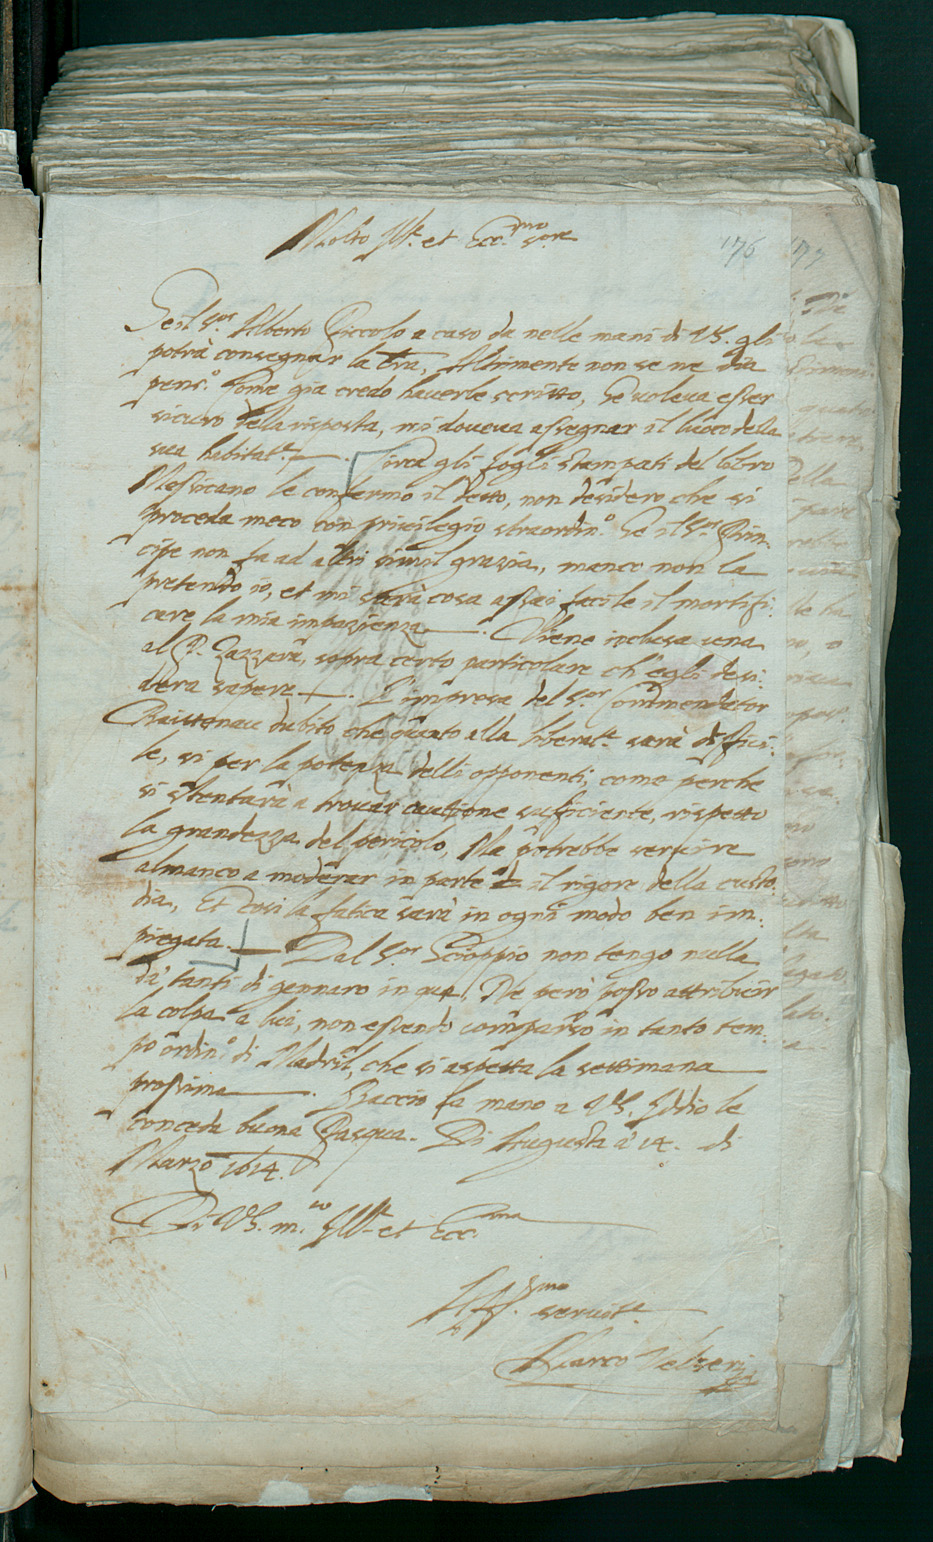 Molto Ill.e et Ecc.mo s.ore
176 177
Se il S.or Alberto Piccolo a caso da nelle mani di VS. gli
potrà consegnar la l'ra, Altrimente non se ne dia
pens.o Come gia credo haverle scritto, Se voleva esser
sicuro della risposta, mi doveva assegnar il luoco della
sua habitat.e Circa gli fogli stampati del libro
Messicano le confermo il detto, non desidero che si
proceda meco con privilegio straordin.o Se il S.or Prin-
cipe non fa ad altri simil grazia, manco non la
pretendo io, et mi sarà cosa assai facile il mortifi-
care la mia impazienza. Viene inclusa una
al P. Zazzera, sopra certo particolare ch'egli desi-
dera sapere. L'impresa del S.or Commendator
dubito che quato alla liberat.e sarà diffici-
le, si per la potenza delli opponenti, come perche
si stentarà a trovar cautione sufficiente, rispetto
la grandezza del pericolo, Ma potrebbe servire
almanco a moderar in parte il rigore della custo-
dia, Et cosi la fatica sarà in ogni modo ben im-
piegata. Dal S.or Scioppio non tengo nulla
da tanti di gennaro in qua, Ne però posso attribuir
la colpa a lui, non essendo comparso in tanto tem-
po ordin.o di Madril, che si aspetta la settimana
prossima. Baccio la mano a VS. Iddio le
conceda buona Pasqua. Di Augusta à 14. di
Marzo 1614.
Di VS. m.to Ill.e et Ecc.ma
Aff.mo servit.e
Marco Velseri